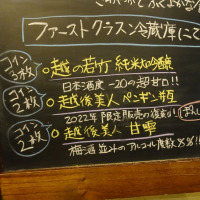 ファーストクラス冷蔵庫にて
コイン3枚 ○越の若竹 純米大吟醸
日本酒度 -20の超甘口!!
コイン2枚 ○越後美人 ペンギン瓶
2022年限定販売の復刻!
コイン2枚 ○越後美人 甘雫
梅酒並みのアルコール度数8%!!